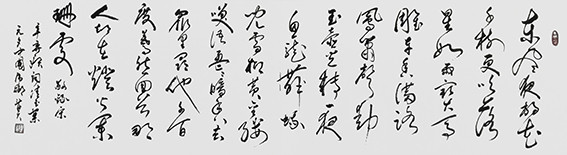 東風夜放花
千樹更吹落
星如雨寶馬
雕車香滿路
鳳簫聲動
玉壺光轉一夜
魚龍舞蛾
兒雪柳黃金縷
笑語盈盈暗香去
眾里尋他千百
度驀然回首那
人卻在燈火闌
珊處
辛棄疾詞青玉案
元夕